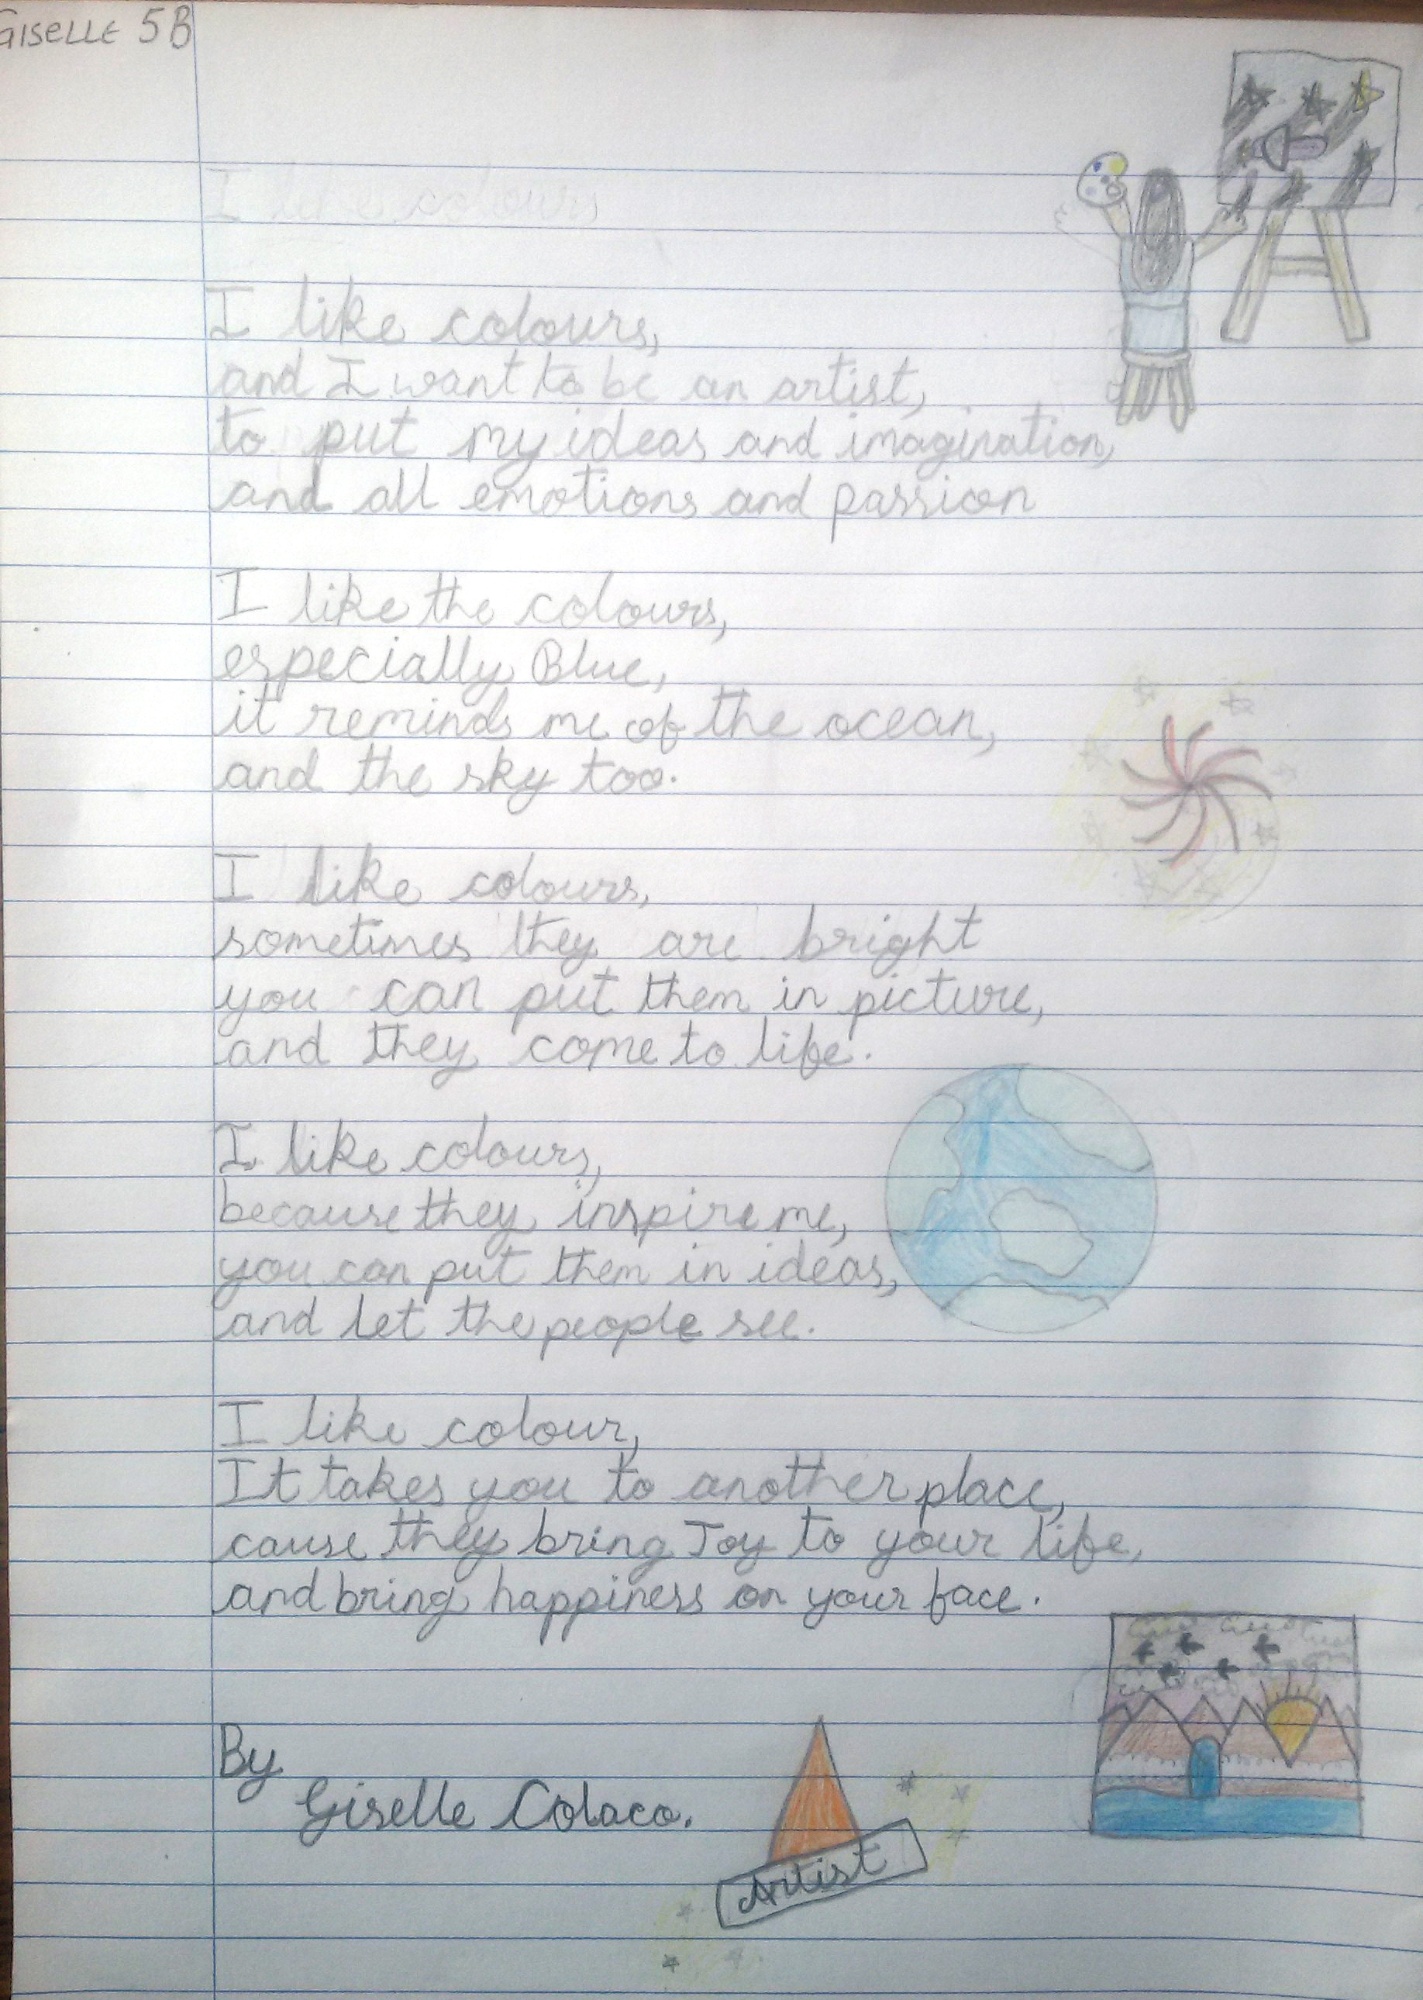 GISELLE 5B
I like colours
I like colours,
and I want to be an artist,
to put my ideas and imagination,
and all emotions and passion
I like the colours,
especially Blue,
it reminds me of the ocean,
and the sky too.
I like colours,
sometimes they are bright
you can put them in picture,
and they come to life.
I like colours,
because they inspire me,
you can put them in ideas,
and let the people see.
I like colour,
It takes you to another place,
cause they bring Joy to your life,
and bring happiness on your face.
By
Giselle Colaco.
Artist